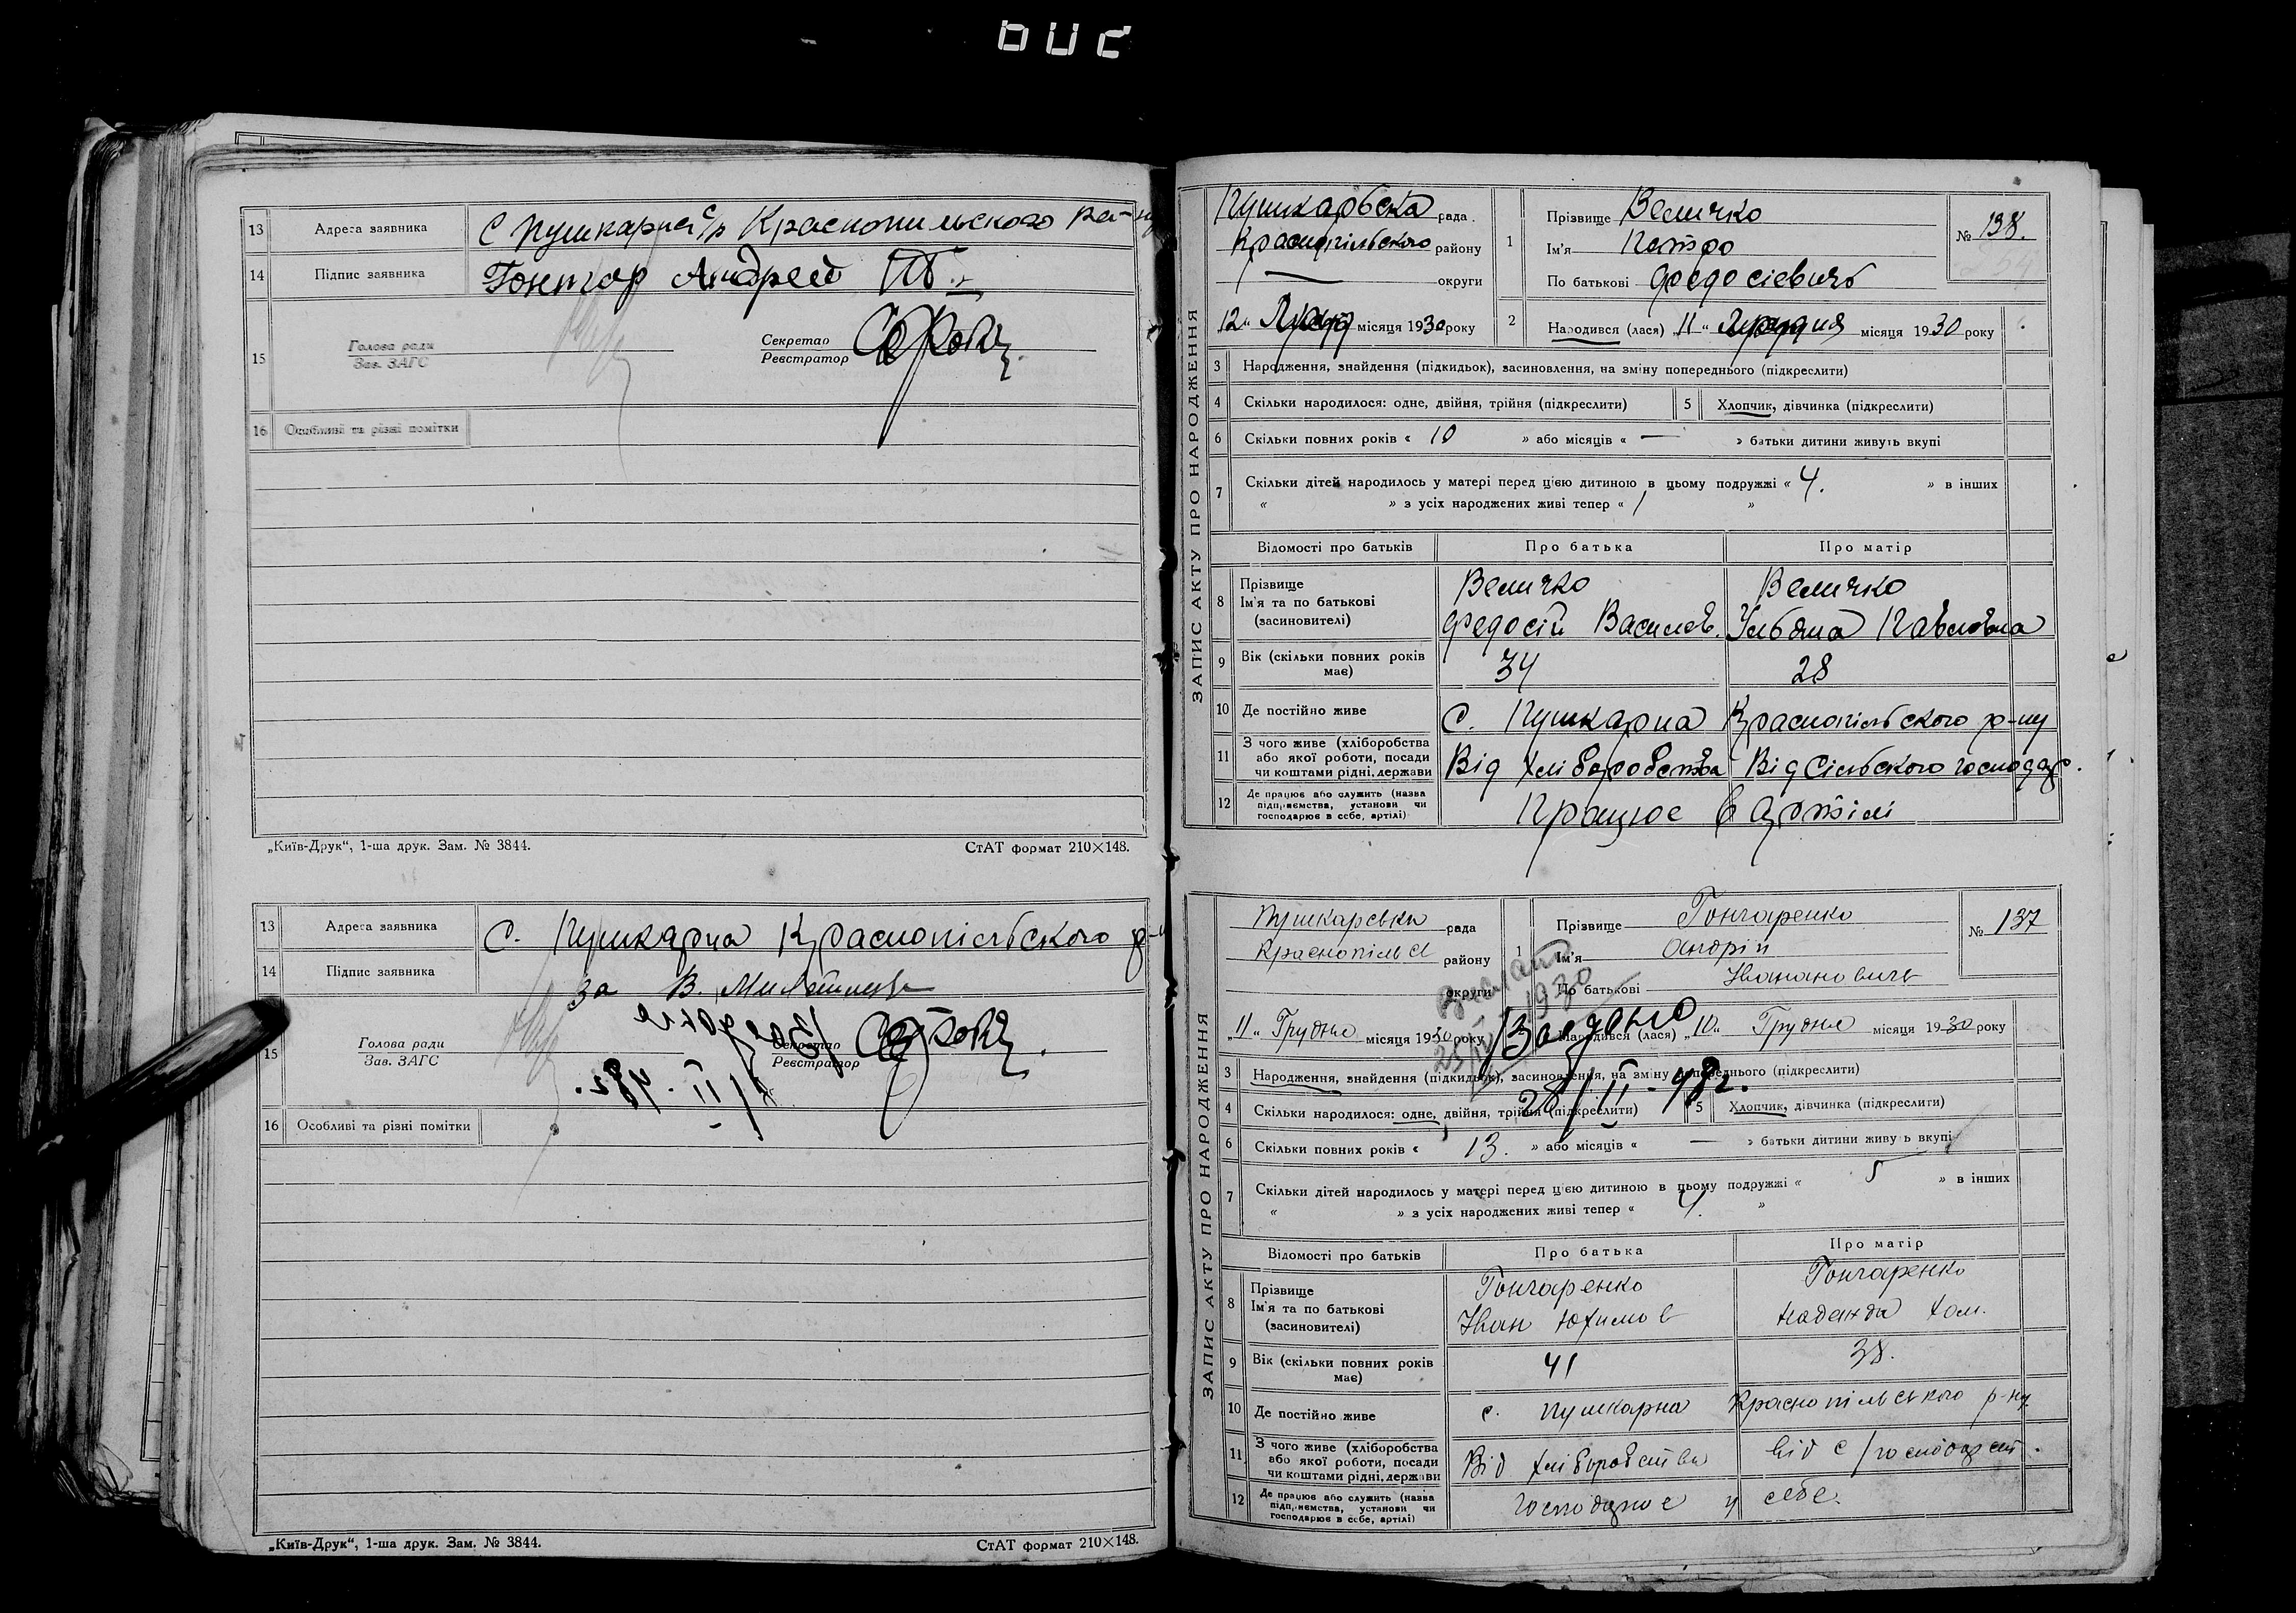 13 Адреса заявника С Пушкарна с/р Краснопильского ра-ну
14 Підпис заявника Гонтар Андрей
15 Голова ради
Зав. ЗАГС
Секретар
Реєстратор
16 Особливі та різні помітки
„Київ-Друк“, 1-ша друк. Зам. № 3844. СтАТ формат 210×148.
13 Адреса заявника С. Пушкарна Краснопільского р-
14 Підпис заявника за В.
15 Голова ради
Зав. ЗАГС
Секретар
Реєстратор
16 Особливі та різні помітки
„Київ-Друк“, 1-ша друк. Зам. № 3844. СтАТ формат 210×148.
ЗАПИС АКТУ ПРО НАРОДЖЕННЯ
Пушкарьска рада
Краснопільского району
округи
12 " місяця 1930 року
1 Прізвище Величко
Ім'я Петро
По батькові Федосієвичь
№ 138.
2 Народився (лася) 11 " Грудня місяця 1930 року
3 Народження, знайдення (підкидьок), засиновлення, на зміну попереднього (підкреслити)
4 Скільки народилося: одне, двійня, трійня (підкреслити) 5 Хлопчик, дівчинка (підкреслити)
6 Скільки повних років « 10 » або місяців « — » батьки дитини живуть вкупі
7 Скільки дітей народилось у матері перед цією дитиною в цьому подружжі « 4. » в інших
« » з усіх народжених живі тепер « 1 »
Відомості про батьків Про батька Про матір
8 Прізвище Величко Величко
Ім'я та по батькові
(засиновителі) Федосій Василов. Ульяна Павловна
9 Вік (скільки повних років має) 34 28
10 Де постійно живе С. Пушкарна Краснопільского р-ну
11 З чого живе (хліборобства
або якої роботи, посади
чи коштами рідні, держави Від хліборобства Від Сільского господар.
12 Де працює або служить (назва
підприємства, установи чи
господарює в себе, артілі) Працює в Артілі
ЗАПИС АКТУ ПРО НАРОДЖЕННЯ
Пушкарська рада
Краснопільск району
округи
„11„ Грудня місяця 1930 року
1 Прізвище Гончаренко
Ім'я Андрій
По батькові Іванановичь
№ 137
2 Народився (лася) „10„ Грудня місяця 1930 року
Видано
28/II-48г.
3 Народження, знайдення (підкидьок), засиновлення, на зміну попереднього (підкреслити)
4 Скільки народилося: одне, двійня, трійня (підкреслити) 5 Хлопчик, дівчинка (підкреслити)
6 Скільки повних років « 13. » або місяців « — » батьки дитини живуть вкупі
7 Скільки дітей народилось у матері перед цією дитиною в цьому подружжі « 5 » в інших
« » з усіх народжених живі тепер « 4. »
Відомості про батьків Про батька Про матір
8 Прізвище Гончаренко Гончаренко
Ім'я та по батькові
(засиновителі) Іван Юхимов Надежда Хом.
9 Вік (скільки повних років має) 41 38.
10 Де постійно живе с. Пушкарна Краснопільського р-ну
11 З чого живе (хліборобства
або якої роботи, посади
чи коштами рідні, держави Від хліборобства від с/господарст.
12 Де працює або служить (назва
підприємства, установи чи
господарює в себе, артілі) Господарює у себе.